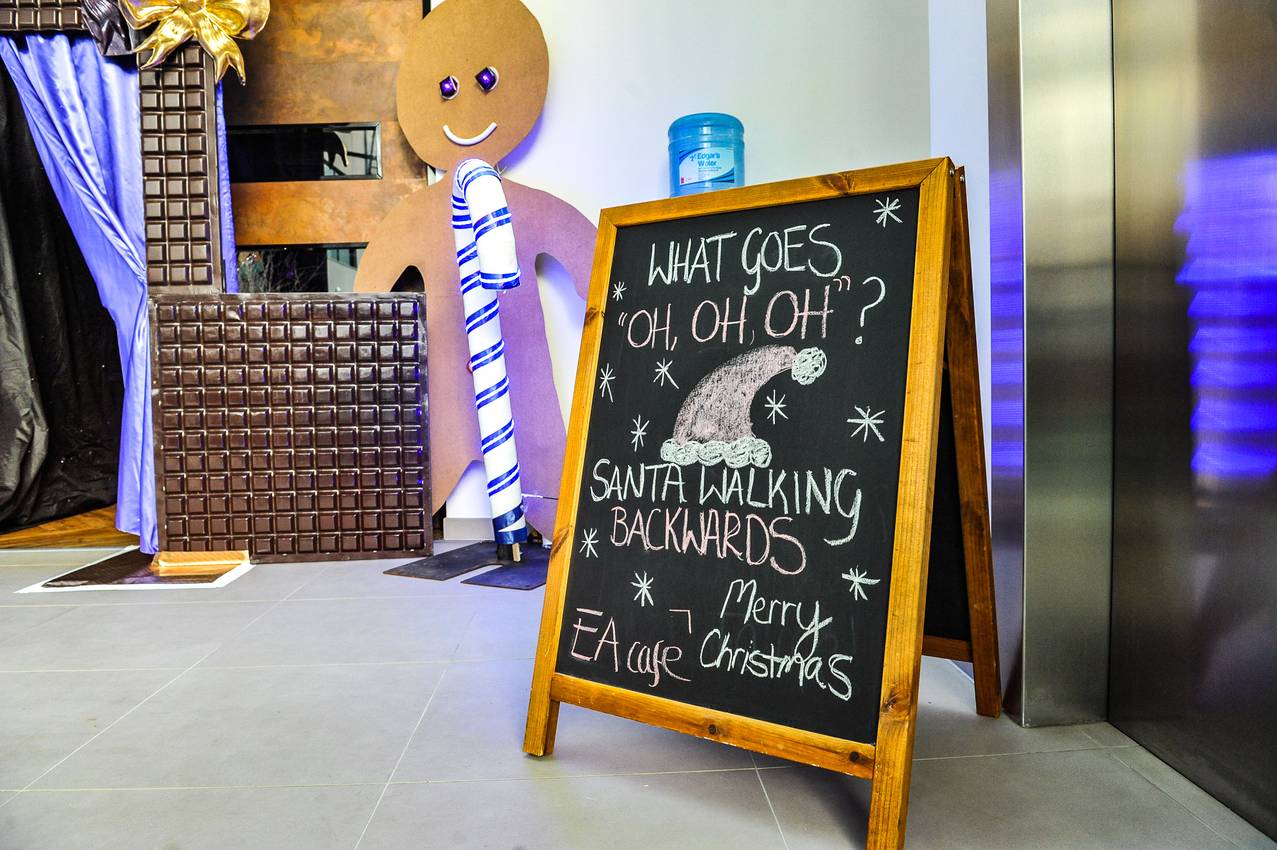 Edgar's
Water
WHAT GOES
"OH, OH, OH"?
SANTA WALKING
BACKWARDS
Merry
Christmas
EA cafe